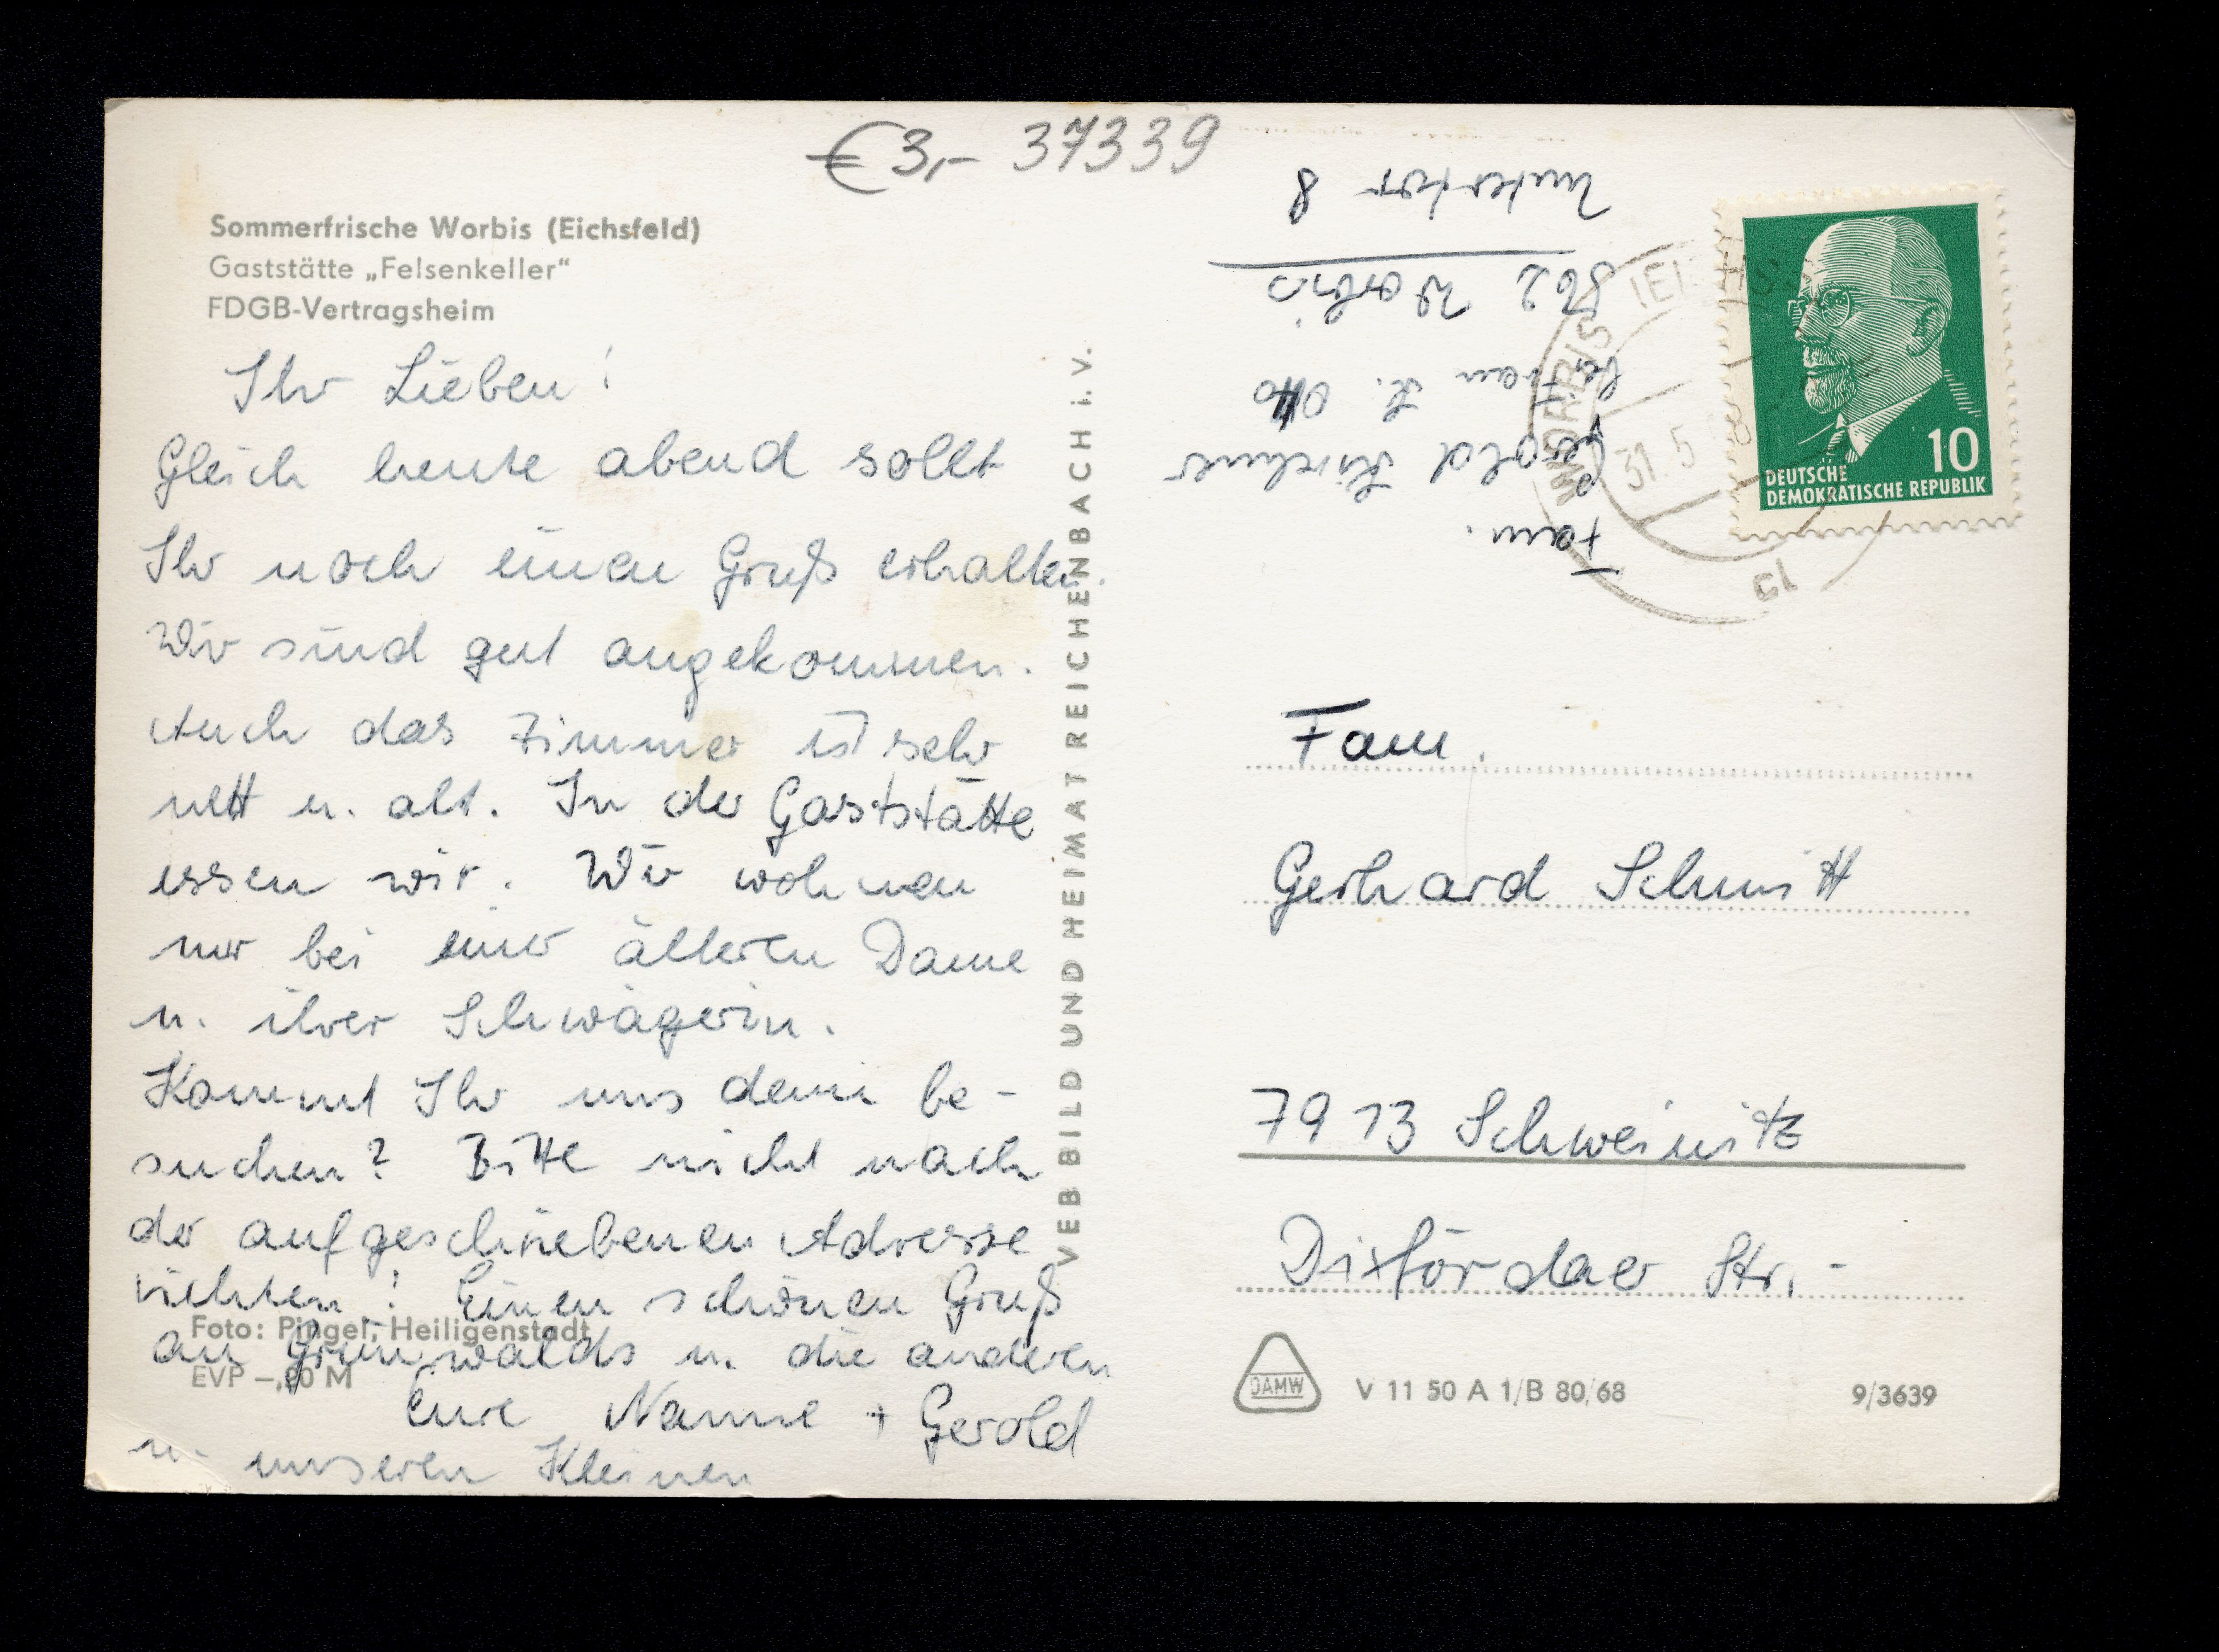 €3,- 37339
Sommerfrische Worbis (Eichsfeld)
Gaststätte „Felsenkeller"
FDGB-Vertragsheim
Ihr Lieben!
Gleich heute abend sollt
Ihr noch einen Gruß erhalten.
Wir sind gut angekommen.
Auch das Zimmer ist sehr
nett u. alt. In der Gaststätte
essen wir. Wir wohnen
nur bei einer älteren Dame
u. ihrer Schwägerin.
Kommt Ihr uns denn be-
suchen? Bitte nicht nach
der aufgeschriebenen Adresse
richten! Einen schönen Gruß
an Grünwalds u. die anderen
Eure Nanne + Gerold
u. unseren Kleinen
Foto: Pingel, Heiligenstadt
EVP –,20 M
VEB BILD UND HEIMAT REICHENBACH i. V.
Fam.
Gerold Kirchner
bei Frau L. Otto
562 Worbis
Untertor 8
WORBIS (EI
31.5
10
DEUTSCHE
DEMOKRATISCHE REPUBLIK
Fam.
Gerhard Schmitt
7913 Schweinitz
Dixfördaer Str. -
DAMW
V 11 50 A 1/B 80/68
9/3639